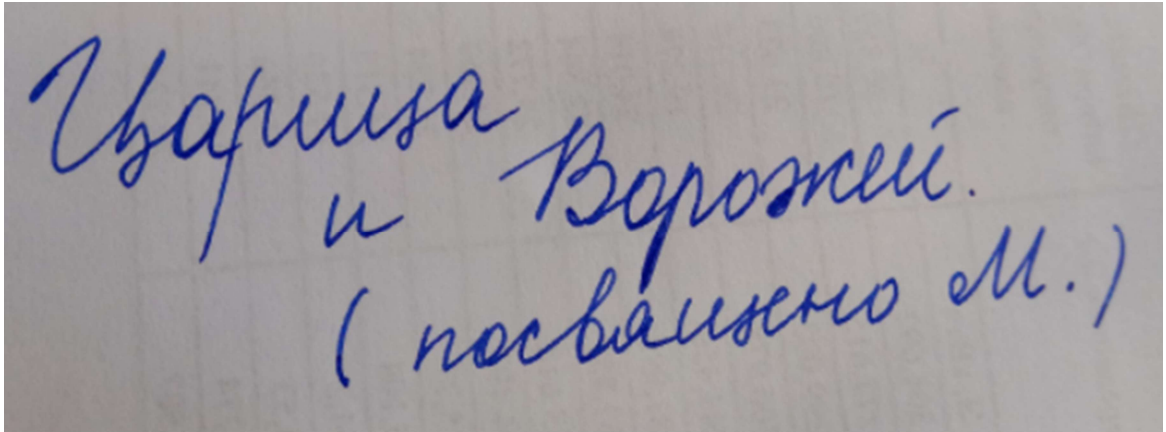 Царица
и Ворожей.
(посвящено М.)